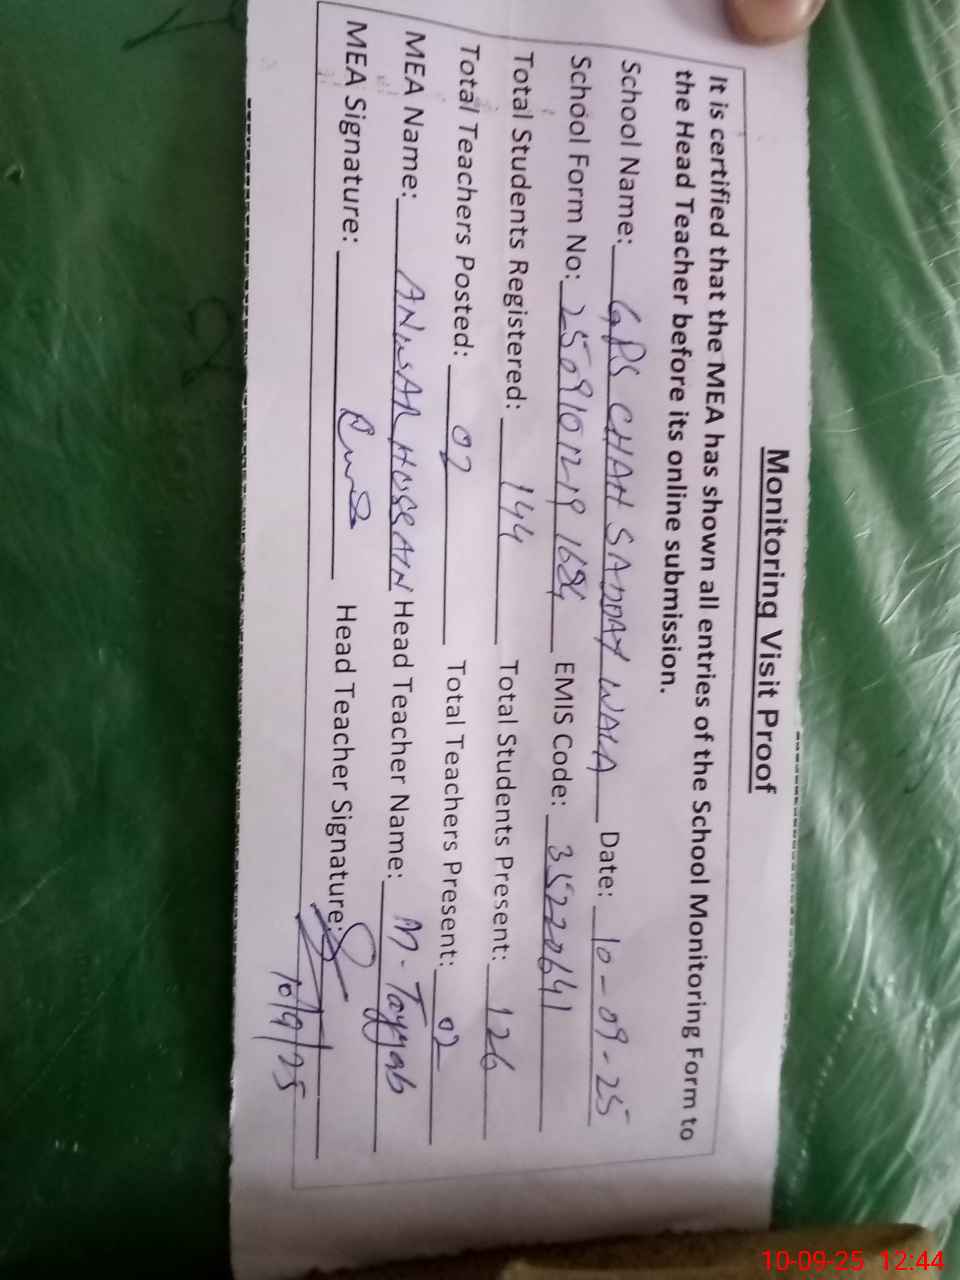 Monitoring Visit Proof
It is certified that the MEA has shown all entries of the School Monitoring Form to
the Head Teacher before its online submission.
School Name: GPS CHAH SADDAY WALA Date: 10-09-25
School Form No: 250910 1219 1684 EMIS Code: 35220641
Total Students Registered: 144 Total Students Present: 126
Total Teachers Posted: 02 Total Teachers Present: 02
MEA Name: ANWAR HUSSAIN Head Teacher Name: M-Tayyab
MEA Signature: Head Teacher Signature:
10/9/25
10-09-25 12:44